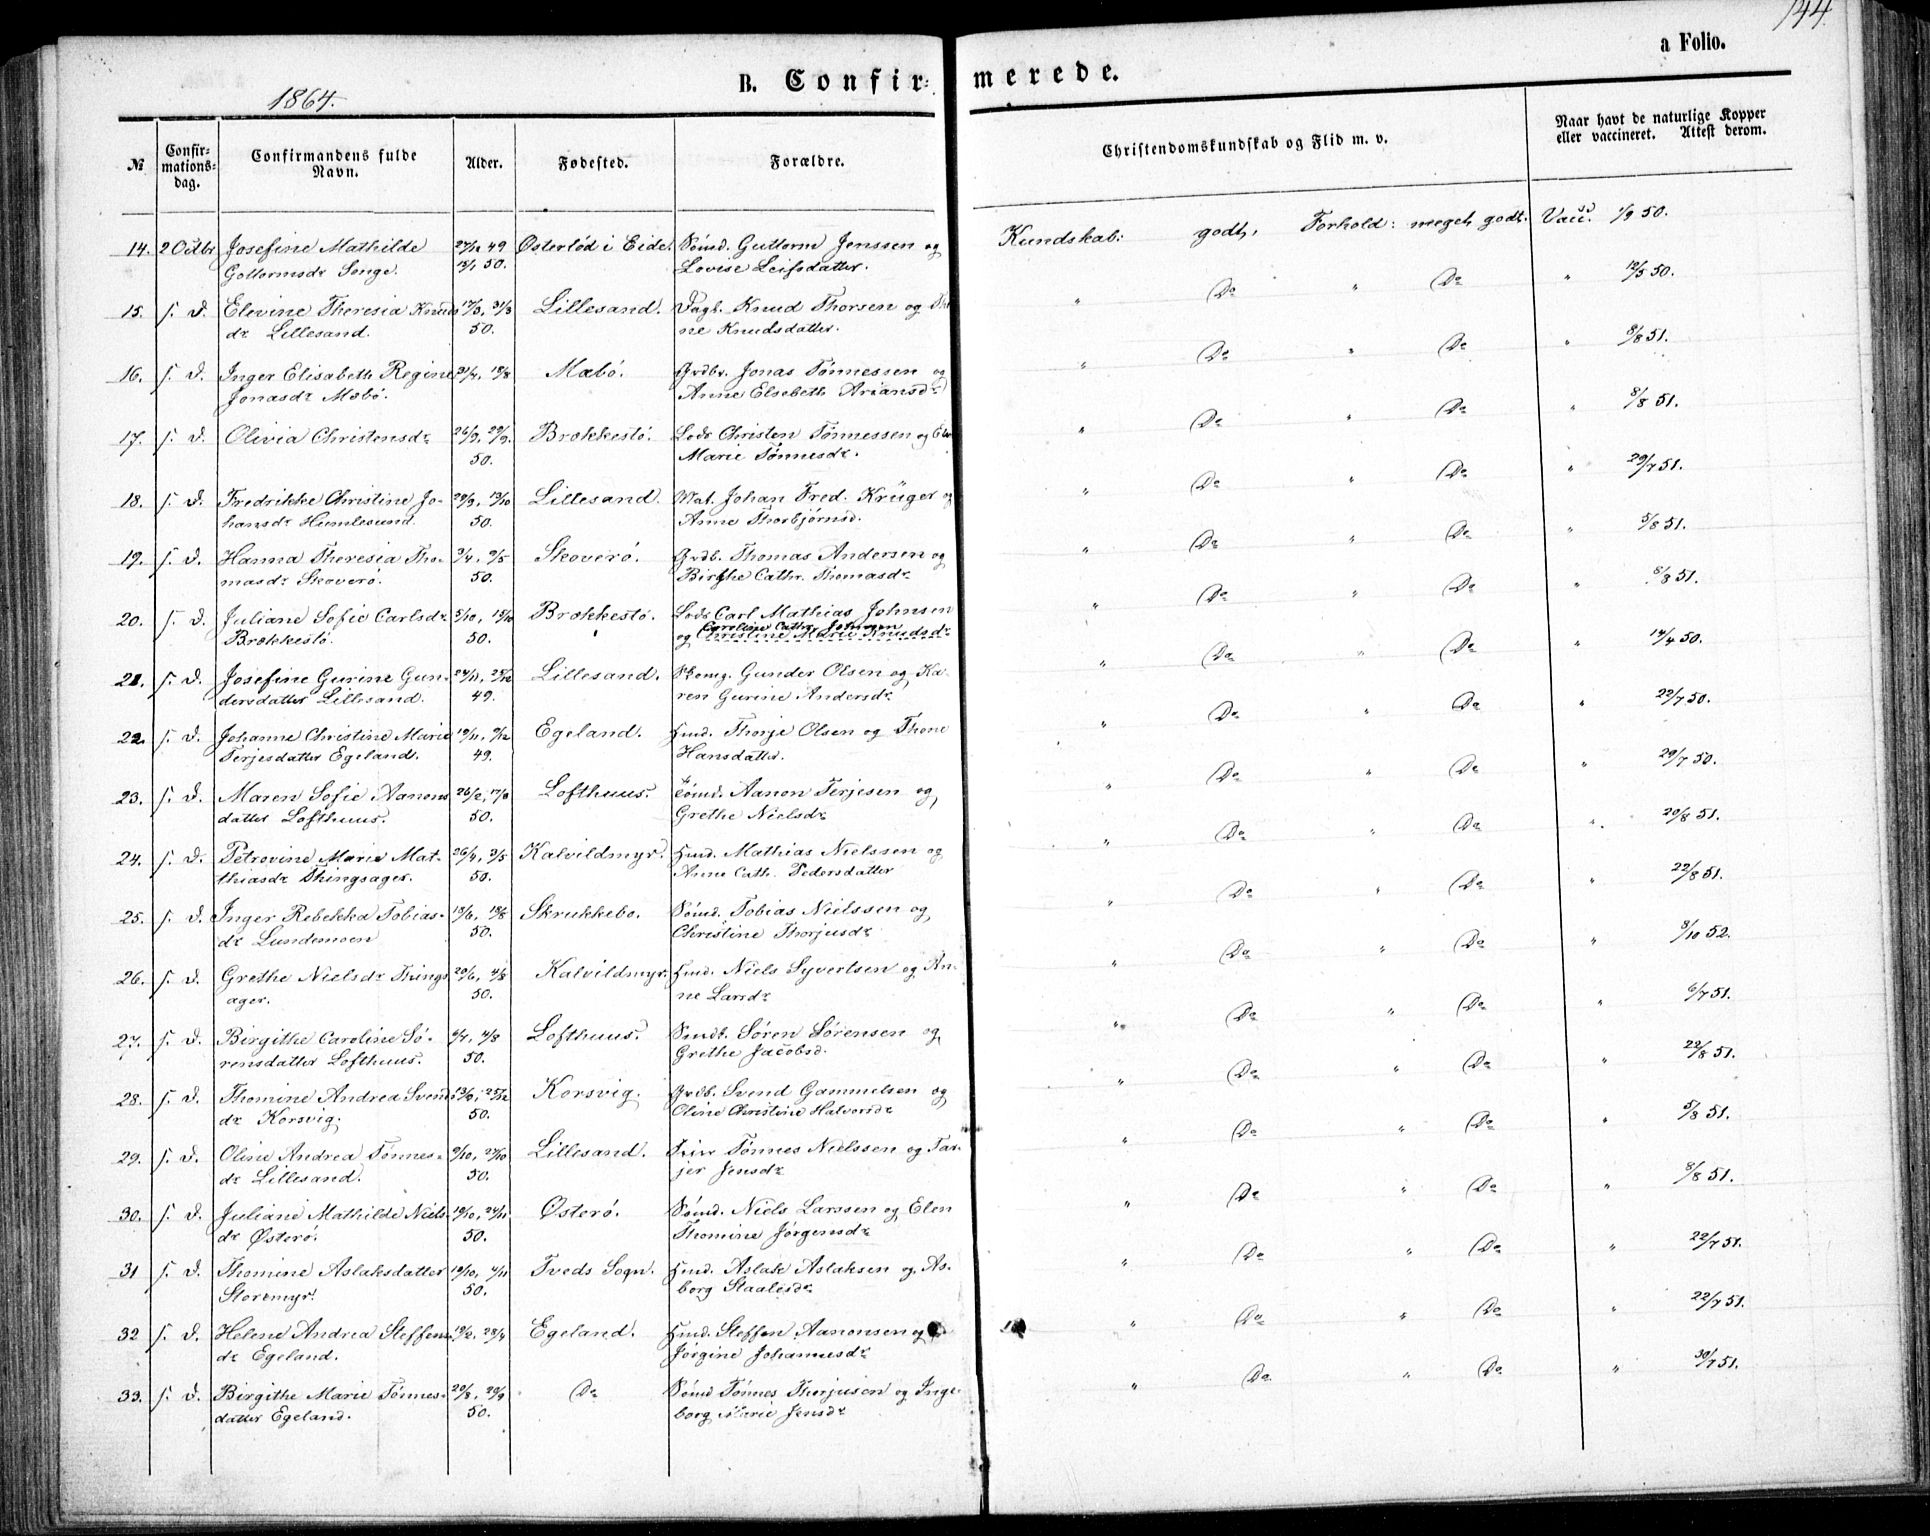 144
a Folio.
B. Confir-merede.
1864.
№
Confir-
mations-
dag.
Confirmandens fulde
Navn.
Alder.
Fødested.
Forældre.
Christendomskundskab og Flid m. v.
Naar havt de naturlige Kopper
eller vaccineret. Attest derom.
14. 2 Octbr Josefine Mathilde 27/12 49 Østerlød i Eide. Sømd. Guttorm Jenssen og Kundskab: godt, Forhold: meget godt. Vacc. 1/9 50.
Gottormsdr Songe. 13/1 50. Lovise Leifsdatter.
15. s. D. Elevine Theresia Knuds 17/3, 31/3 Lillesand. Dagl. Knud Thorsen og " Do " Do " 12/5 50.
dr Lillesand. 50. ne Knudsdatter.
16. s. D. Inger Elisabeth Regine 21/7, 18/8 Mæbö. Grdbr. Jonas Tønnessen og " Do " Do " 8/8 51.
Jonasdr Mæbö. Anne Elsebeth Ariansdr
17. s. D. Olivia Christensdr 26/9, 29/9 Brækkestö. Lods Christen Tønnessen og " Do " Do " 8/8 51.
50. Marie Tønnesdr.
18. s. D. Fredrikke Christine Jo- 29/9, 13/10 Lillesand. Mat. Johan Fred. Krüger og " Do " Do " 29/7 51.
hansdr Humlesund. 50. Anne Thorbjørnsd.
19. s. D. Hanna Theresia Tho- 3/4, 9/5 Skoverö. Grdb. Thomas Andersen og " Do " Do " 5/8 51.
masdr Skoverö. 50. Birthe Cathr. Thomasdr
20. s. D. Juliane Sofie Carlsdr 5/10, 15/10 Brækkestö. Lods Carl Mathias Johnsen " Do " Do " 8/8 51.
Brækkestö. 50. Caroline Cathr. Johnsen
og Christine Marie Knudsd
21. s. D. Josefine Gurine Gun- 24/11, 25/12 Lillesand. Skomg. Gunder Olsen og Ka- " Do " Do " 14/4 50.
dersdatter Lillesand. 49. ren Gurine Andersdr.
22. s. D. Johanne Christine Marie 19/11, 9/12 Egeland. Hmd. Thorje Olsen og Thone " Do " Do " 22/7 50.
Terjesdatter Egeland. 49. Hansdatter.
23. s. D. Maren Sofie Aanons 26/2, 17/3 Lofthuus. Tømd. Aanon Terjesen og " Do " Do " 29/7 50.
datter Lofthuus. 50. Grethe Nielsdr
24. s. D. Petrovine Marie Mat- 26/4, 3/5 Kalvildmyr. Hmd. Mathias Nielssen og " Do " Do " 20/8 51.
thiasdr Thingsager. 50. Anne Cath. Pedersdatter
25. s. D. Inger Rebekka Tobias- 13/6, 18/8 Skrukkebo. Sømd. Tobias Nielssen og " Do " Do " 22/8 51.
dr Lundemoen 50. Christine Thorjusdr
26. s. D. Grethe Nielsdr Things 20/6, 4/8 Kalvildmyr. Hmd. Niels Syvertsen og An- " Do " Do " 3/10 52.
ager. 50. ne Larsdr
27. s. D. Birgithe Caroline Sö- 6/7, 4/8 Lofthuus. Smdt. Sören Sörensen og " Do " Do " 6/7 51.
rensdatter Lofthuus. 50. Grethe Jacobsd.
28. s. D. Thomine Andrea Svend 25/12 Korsvig. Grdb. Svend Gammelsen og " Do " Do " 22/8 51.
dr Korsvig. 50. Oline Christine Halvorsdr
29. s. D. Oline Andrea Tønnes- 9/10, 27/10 Lillesand. Tønnes Nielssen og Tar- " Do " Do " 5/8 51.
dr Lillesand. 50. jer Jensdr
30. s. D. Juliane Mathilde Niels- 19/10, 24/11 Østerö. Sømd. Niels Larssen og Elen " Do " Do " 8/8 51.
dr Østerö. 50. Thomine Jørgensdr
31 s. D. Thomine Aslaksdatter 19/10, 4/11 Tveds Sogn. Hmd. Aslak Aslaksen og As- " Do " Do " 22/7 51.
Storemyr. 50. borg Staalesdr
32 s. D. Helene Andrea Steffens 19/2, 28/4 Egeland. Hmd. Steffen Aanonsen og " Do " Do " 22/7 51.
dr Egeland. Jørgine Johannesdr
33. s. D. Birgithe Marie Tønnes- 20/8, 29/9 Do Sømd Tønnes Thorjusen og Inge- " Do " Do " 30/7 51.
datter Egeland. 50. borg Marie Jensdr